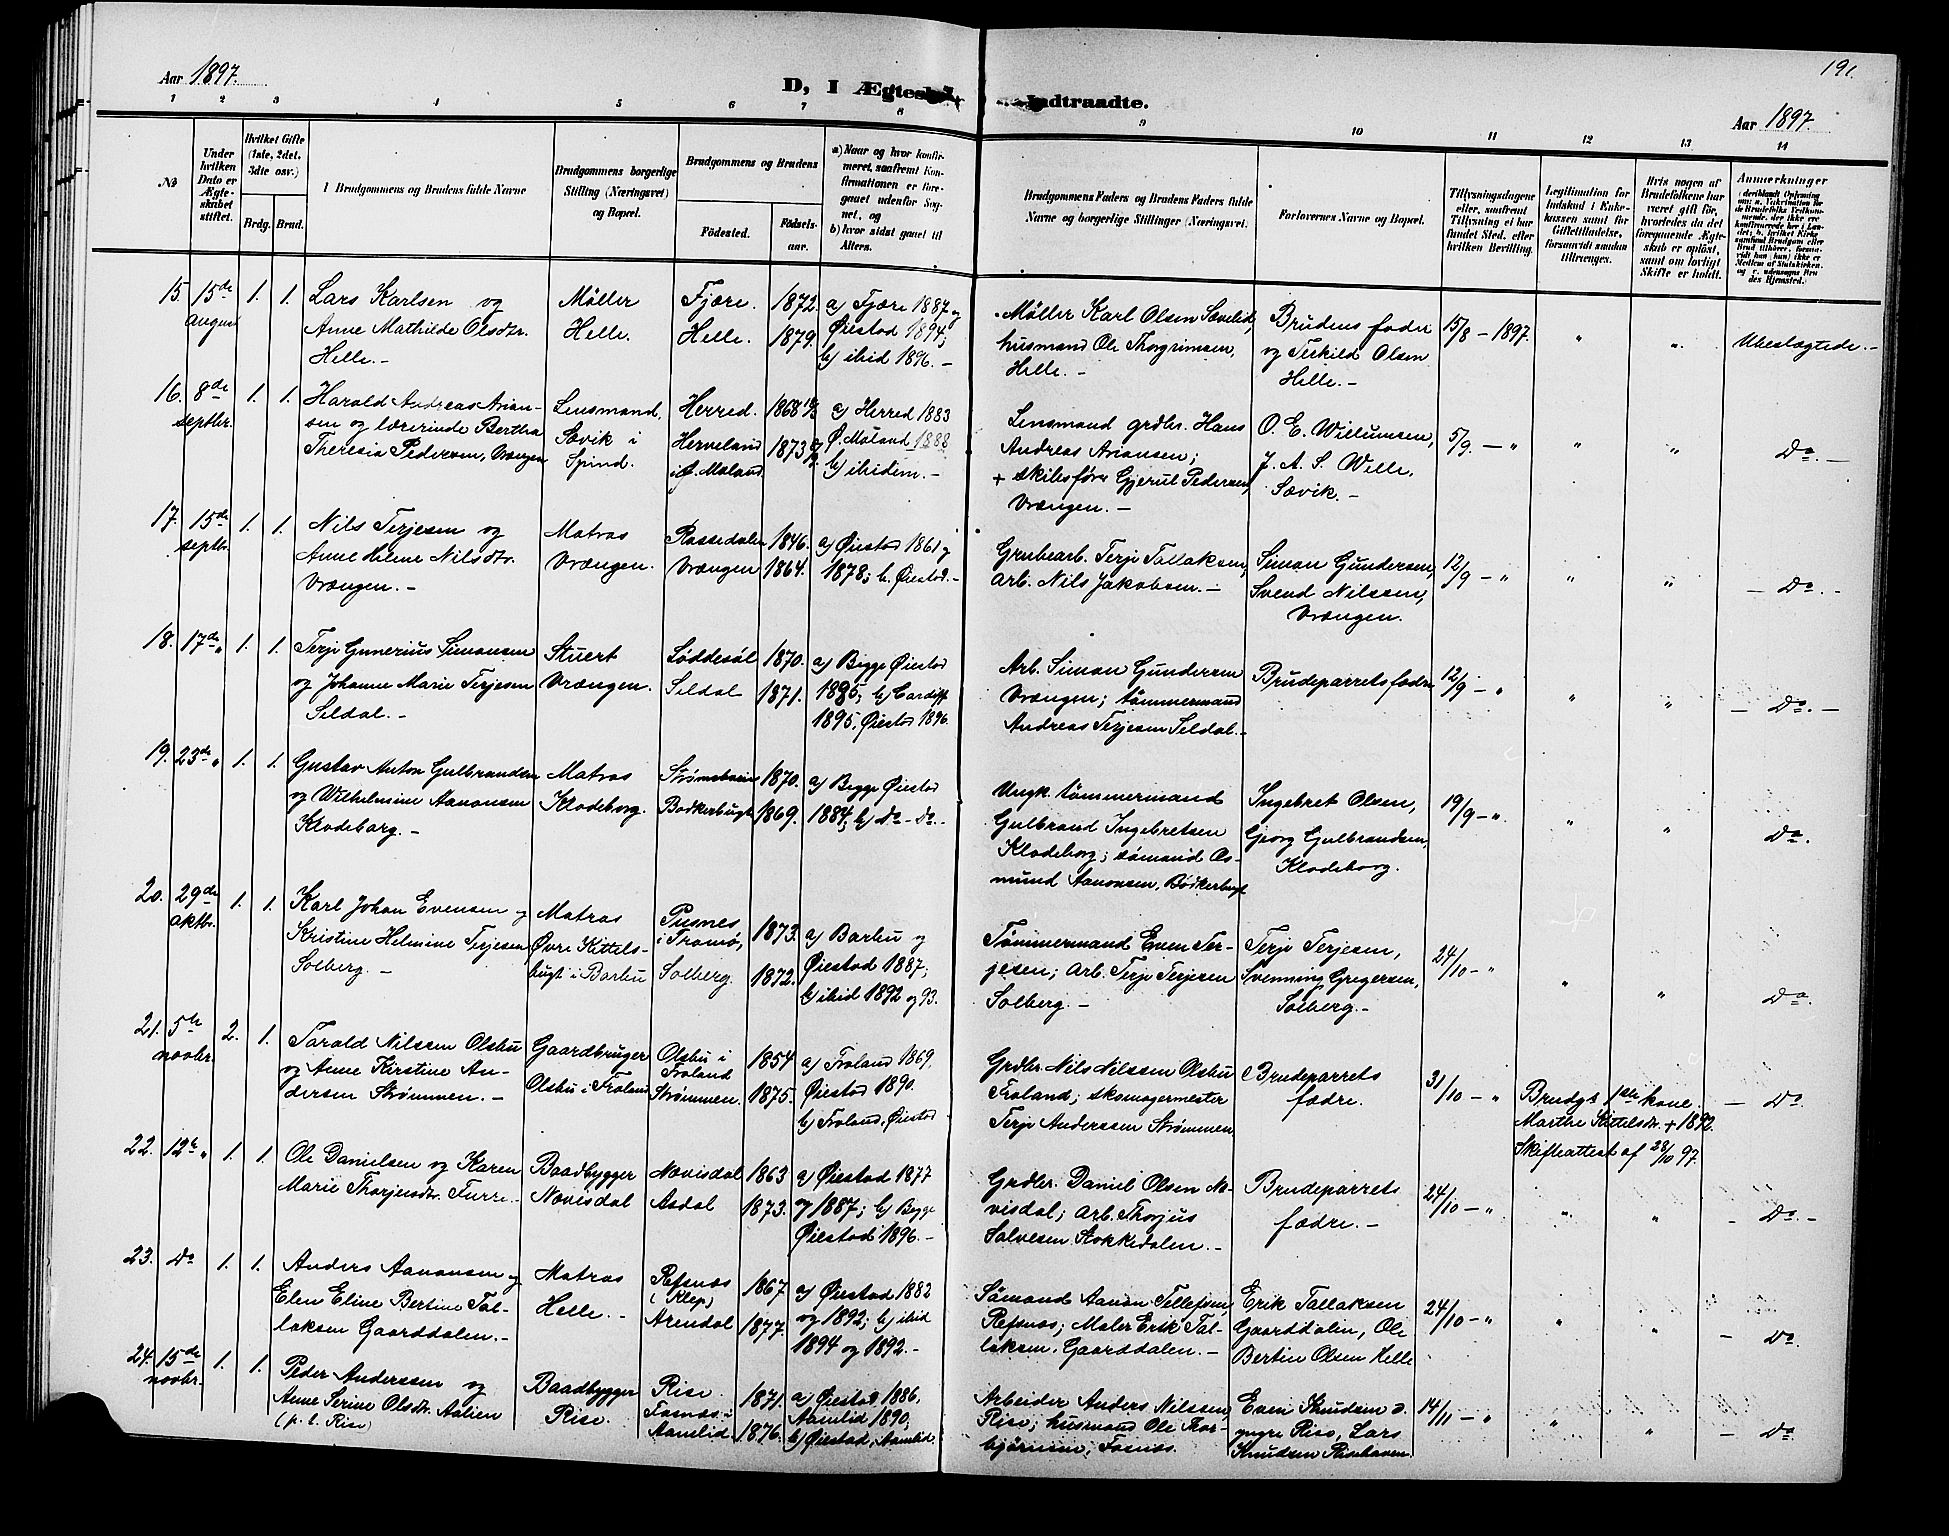 Aar 1897.
D, I Ægtesk
Indtraadte.
191.
Aar 1897.
1 2 3 4 5 6 7 8 9 10 11 12 13 14
No
Under hvilken Dato er Ægteskabet stiftet.
Hvilket Gifte (1ste, 2det, 3dte osv.)
Brdg. Brud.
Brudgommens og Brudens fulde Navne
Brudgommens borgerlige Stilling (Næringsvei) og Bopæl.
Brudgommens og Brudens
Fødested.
Fødselsaar.
a) Naar og hvor konfirmeret, saafremt Konfirmationen er foregaaet udenfor Sognet, og
b) hvor sidst gaaet til Alters.
Brudgommens Faders og Brudens Faders fulde Navne og borgerlige Stillinger (Næringsvei).
Forlovernes Navne og Bopæl.
Tillysningsdagene eller, saafremt Tillysning ei har fundet Sted, efter hvilken Bevilling.
Legitimation for Indskud i Enkekassen samt for Giftetilladelse, forsaavidt saadan tiltrænges.
Hvis nogen af Brudefolkene har været gift før, hvorledes da det foregaaende Ægteskab er opløst, samt om lovligt Skifte er holdt.
Anmerkninger
15. 15de august 1. 1.
Lars Karlsen og
Anne Mathilde Olsdtr.
Helle. –
Møller
Helle.
Fjære. 1872.
Helle. 1879.
a) Fjære 1887 og
Øiestad 1894;
b) ibid 1896. –
Møller Karl Olsen Sævelid,
husmand Ole Thorgrimsen,
Helle. –
Brudens fader
og Terkild Olsen
Helle. –
15/8 – 1897. " "
Ubeslægtede. –
16. 8de septbr. 1. 1.
Harald Andreas Arian-
sen og lærerinde Bertha
Theresia Pedersen, Vrængen
Lensmand,
Sævik i
Spind.
Herred. 1868
Herveland 1873
i Ø. Moland
a) Herred 1883
Ø. Moland 1888
b) ibidem. –
Lensmand grdbr. Hans
Andreas Ariansen;
+ skibsfører Gjerul Pedersen,
Vrængen. –
O. E. Willumsen,
J. A. S. Wille,
Sævik. –
5/9. – " " "
Do. –
17. 15de septbr. 1. 1.
Nils Terjesen og
Anne Helene Nilsdtr.
Vrængen. –
Matros
Vrængen.
Rossedalen 1846.
Vrængen 1864.
a) Øiestad 1861 og
1878; b. Øiestad. –
Grubearb. Terje Tallaksen,
Arb. Nils Jakobsen. –
Simon Gundersen,
Svend Nilssen,
Vrængen.
12/9 – " " "
– Do. –
18. 17de " 1. 1.
Terje Gunerius Simonsen
og Johanne Marie Terjesen
Seldal. –
Stuert
Vrængen.
Løddesøl 1870.
Seldal 1871.
a) Begge Øiestad
1885; b) Cardiff
1895, Øiestad 1896.
Arb. Simon Gundersen
Vrængen; tømmermand
Andreas Terjesen Seldal. –
Brudeparrets fædre
12/9 – " " "
– Do. –
19. 23de " 1. 1.
Gustav Anton Gulbrandsen
og Wilhelmine Aanonsen
Klodeborg. –
Matros
Klodeborg.
Strømsbuin 1870.
Bødkerbugt 1869.
a) Begge Øiestad
1884; b) Do – Do. –
Ungk. tømmermand
Gulbrand Ingebretsen
Klodeborg; sømand Os-
mund Aanonsen, Bødkerbugt
Ingebret Olsen,
Georg Gulbrandsen,
Klodeborg.
19/9 – " " "
Do.
20. 29de oktbr. 1. 1.
Karl Johan Evensen og
Kristine Helmine Terjesen
Solberg. –
Matros
Øvre Kittels-
bugt i Barbu
Pusnes
i Tromø, 1873.
Solberg. 1872.
a) Barbu og
Øiestad 1887;
b) ibid 1892 og 93.
Tømmermand Even Ter-
jesen; Arb. Terje Terjesen
Solberg. –
Terje Terjesen,
Svenning Gregersen,
Solberg. –
24/10 – " " "
Do.
21. 5te novbr. 2. 1.
Tarald Nilssen Olsbu
og Anne Kirstine An-
dersen Strømmen. –
Gaardbruger
Olsbu i Froland
Olsbu i
Froland 1854
Strømmen. 1875.
a) Froland 1869.
Øiestad 1890.
b) Froland, Øiestad
Grdbr. Nils Nilssen Olsbu
Froland; skomagermester
Terje Anderssen Strømmen.
Brudeparrets
fædre.
31/10 – "
Brudgs 1ste kone
Marthe Kittelsdtr. + 1892.
Skifteattest af 28/10 97.
– Do.
22. 12te " 1. 1.
Ole Danielsen og Karen
Marie Thorjusdtr. Furre. –
Baadbygger
Nævisdal
Nævisdal 1863
Asdal 1873.
a) Øiestad 1877
og 1887; b) Begge
Øiestad 1896. –
Grdbr. Daniel Olsen Næ-
visdal; Arb. Thorjus
Salvesen Stokkedalen. –
Brudeparrets
fædre. –
24/10 – " " "
– Do. –
23. Do 1. 1.
Anders Aanonsen og
Elen Eline Bertine Tal-
laksen Gaarddalen. –
Matros
Helle. –
Refsnæs
(Klep) 1867
Arendal 1877.
a) Øiestad 1882
og 1892; b) ibid
1894 og 1892. –
Sømand Aanon Tellefsen,
Refsnæs; Maler Erik Tal-
laksen, Gaarddalen. –
Erik Tallaksen
Gaarddalen, Ole
Bertin Olsen Helle
24/10 – " " "
– Do.
24. 15de novbr. 1. 1.
Peder Anderssen og
Anne Serine Olsdtr. Aalien
(p. t. Rise)
Baadbygger
Rise.
Rise. 1871.
Fosnæs i
Aamlid. 1876.
a) Øiestad 1886,
Aamlid 1890;
b) Øiestad, Aamlid.
Arbeider Anders Nilssen,
Rise; husmand Ole Thor-
bjørnsen, Fosnæs.
Even Knudsen d.
yngre Rise, Lars
Knudsen Risehaven.
14/11 – " " "
– Do.